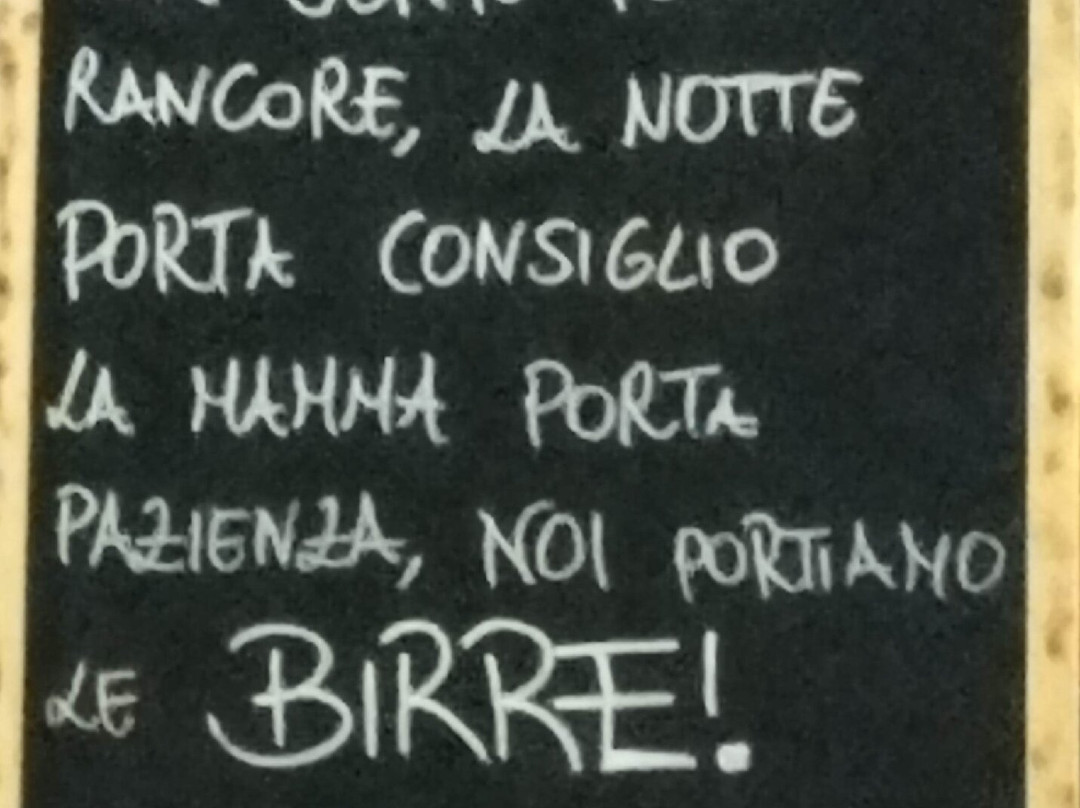 RANCORE, LA NOTTE
PORTA CONSIGLIO
LA MAMMA PORTA
PAZIENZA, NOI PORTIAMO
LE BIRRE!